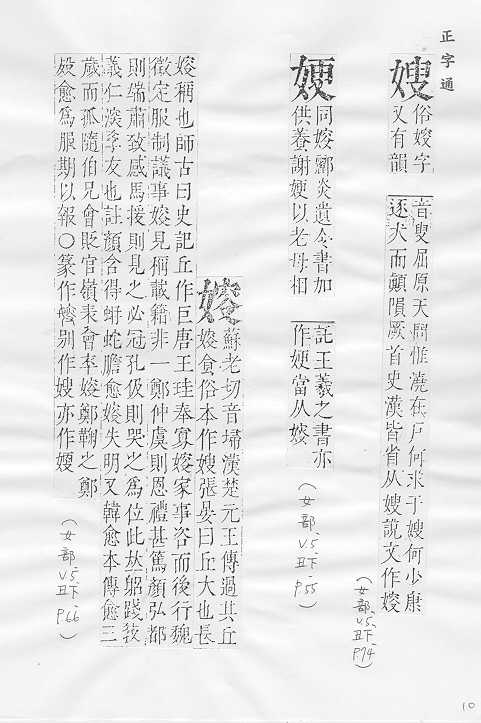 正字通
嫂
俗㛮字
又有韻
音叟屈原天問惟澆在戸何求于嫂何少康
逐犬而顚隕厥首史漢皆省从嫂說文作㛮
(女部 V.5, 丑下 P.74)
㛐
同㛮酈炎遺令書加
供養謝㛐以老母相
託王羲之書亦
作㛐當从㛮
(女部 V.5, 丑下 P.55)
㛮
蘇老切音埽漢楚元王傳過其丘
㛮食俗本作嫂張晏曰丘大也長
㛮稱也師古曰史記丘作巨唐王珪奉寡㛮家事咨而後行魏
徵定服制議事㛮見稱載籍非一鄭仲虞則恩禮甚篤顏弘都
則端肅致感馬援則見之必冠孔伋則哭之爲位此躬踐敎
義仁深孝友也註顏含得蚺蛇膽愈㛮失明又韓愈本傳愈三
歲而孤隨伯兄會貶官嶺表會卒㛮鄭鞠之鄭
歿愈爲服期以報〇篆作别作嫂亦作
(女部 V.5, 丑下 P.66)
10